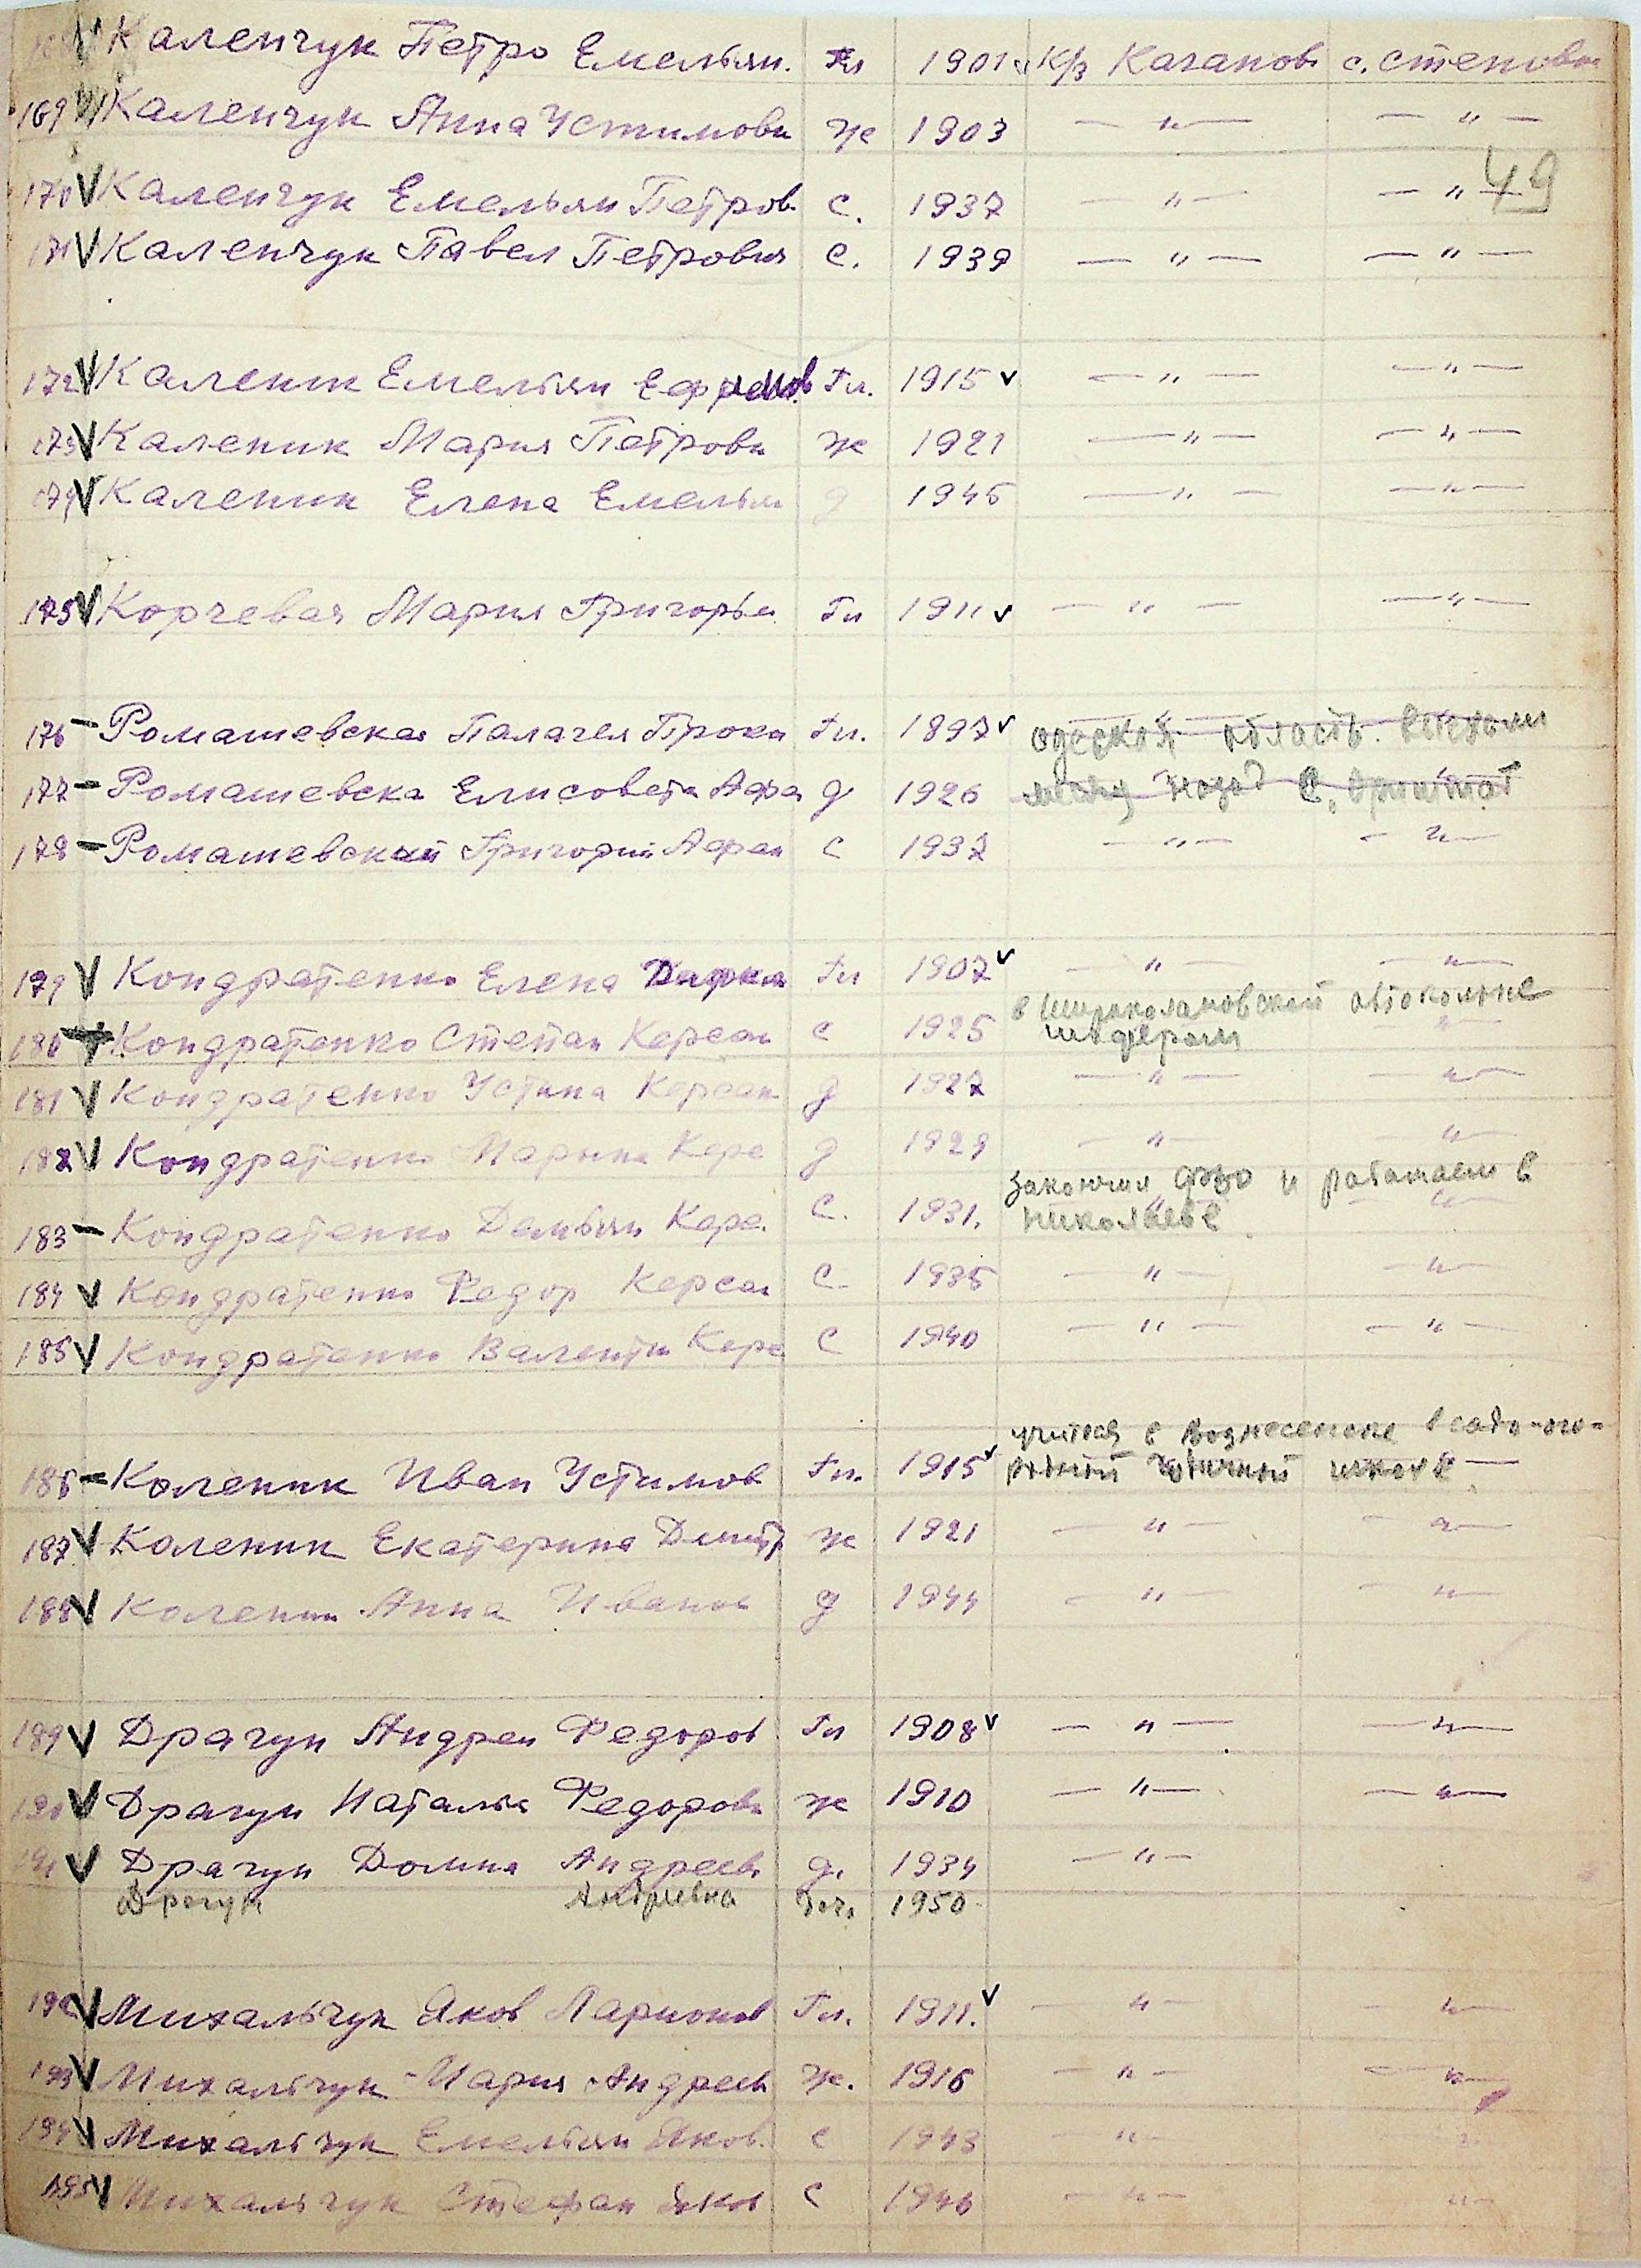 Каленчук Петро Емельян. Гл 1901 К/з Каганов с. Степовое
169 Каленчук Анна Устимовн ж 1903 — " — — " —
49
170 V Каленчук Емельян Петров. с. 1937 — " — — " —
171 V Каленчук Павел Петрович с. 1939 — " — — " —
172 V Каленик Емельян Ефимов. Гл. 1915 v — " — — " —
173 V Каленик Мария Петровн ж 1921 — " — — " —
174 V Каленик Елена Емельян д 1945 — " — — " —
175 V Корчевая Мария Григорье Гл 1911 v — " — — " —
176 - Ромашевская Палагея Проки Гл. 1897 v одеской область. выехали
177 - Ромашевска Елисовета Афа д 1926 месяц назад с.
178 - Ромашевский Григорий Афан с 1937 — " — — " —
179 V Кондратенко Елена Гл 1907 v — " — — " —
в Широколановской автоколоне
180 Кондратенко Степан Керсан с 1925 шофером — " —
181 V Кондратенко Устина Керсан д 1927 — " — — " —
182 V Кондратенко Марина Керс д 1929 — " — — " —
закончил ФЗО и работает в
183 - Кондратенко Демьян Керс. с. 1931. Николаеве — " —
184 V Кондратенко Федор Керсан с 1935 — " — — " —
185 V Кондратенко Валенти Керс с 1940 — " — — " —
учится в Вознесенске в садо-ого-
186 - Каленик Иван Устимов Гл. 1915 v родней годичной школе —
187 V Каленик Екатерина Дмитр ж 1921 — " — — " —
188 V Каленик Анна Иванов д 1944 — " — — " —
189 V Драгун Андрей Федоров Гл 1908 v — " — — " —
190 V Драгун Наталья Федоровн ж 1910 — " — — " —
191 V Драгун Домна Андреев д. 1934 — " —
Драгун Андреевна доч. 1950
192 V Михальчук Яков Ларионов Гл. 1911. v — " — — " —
193 V Михальчук Мария Андреев ж. 1916 — " — — " —
194 V Михальчук Емельян Яков. с 1943 — " — — " —
195 V Михальчук Стефан Яков с 1946 — " — — " —